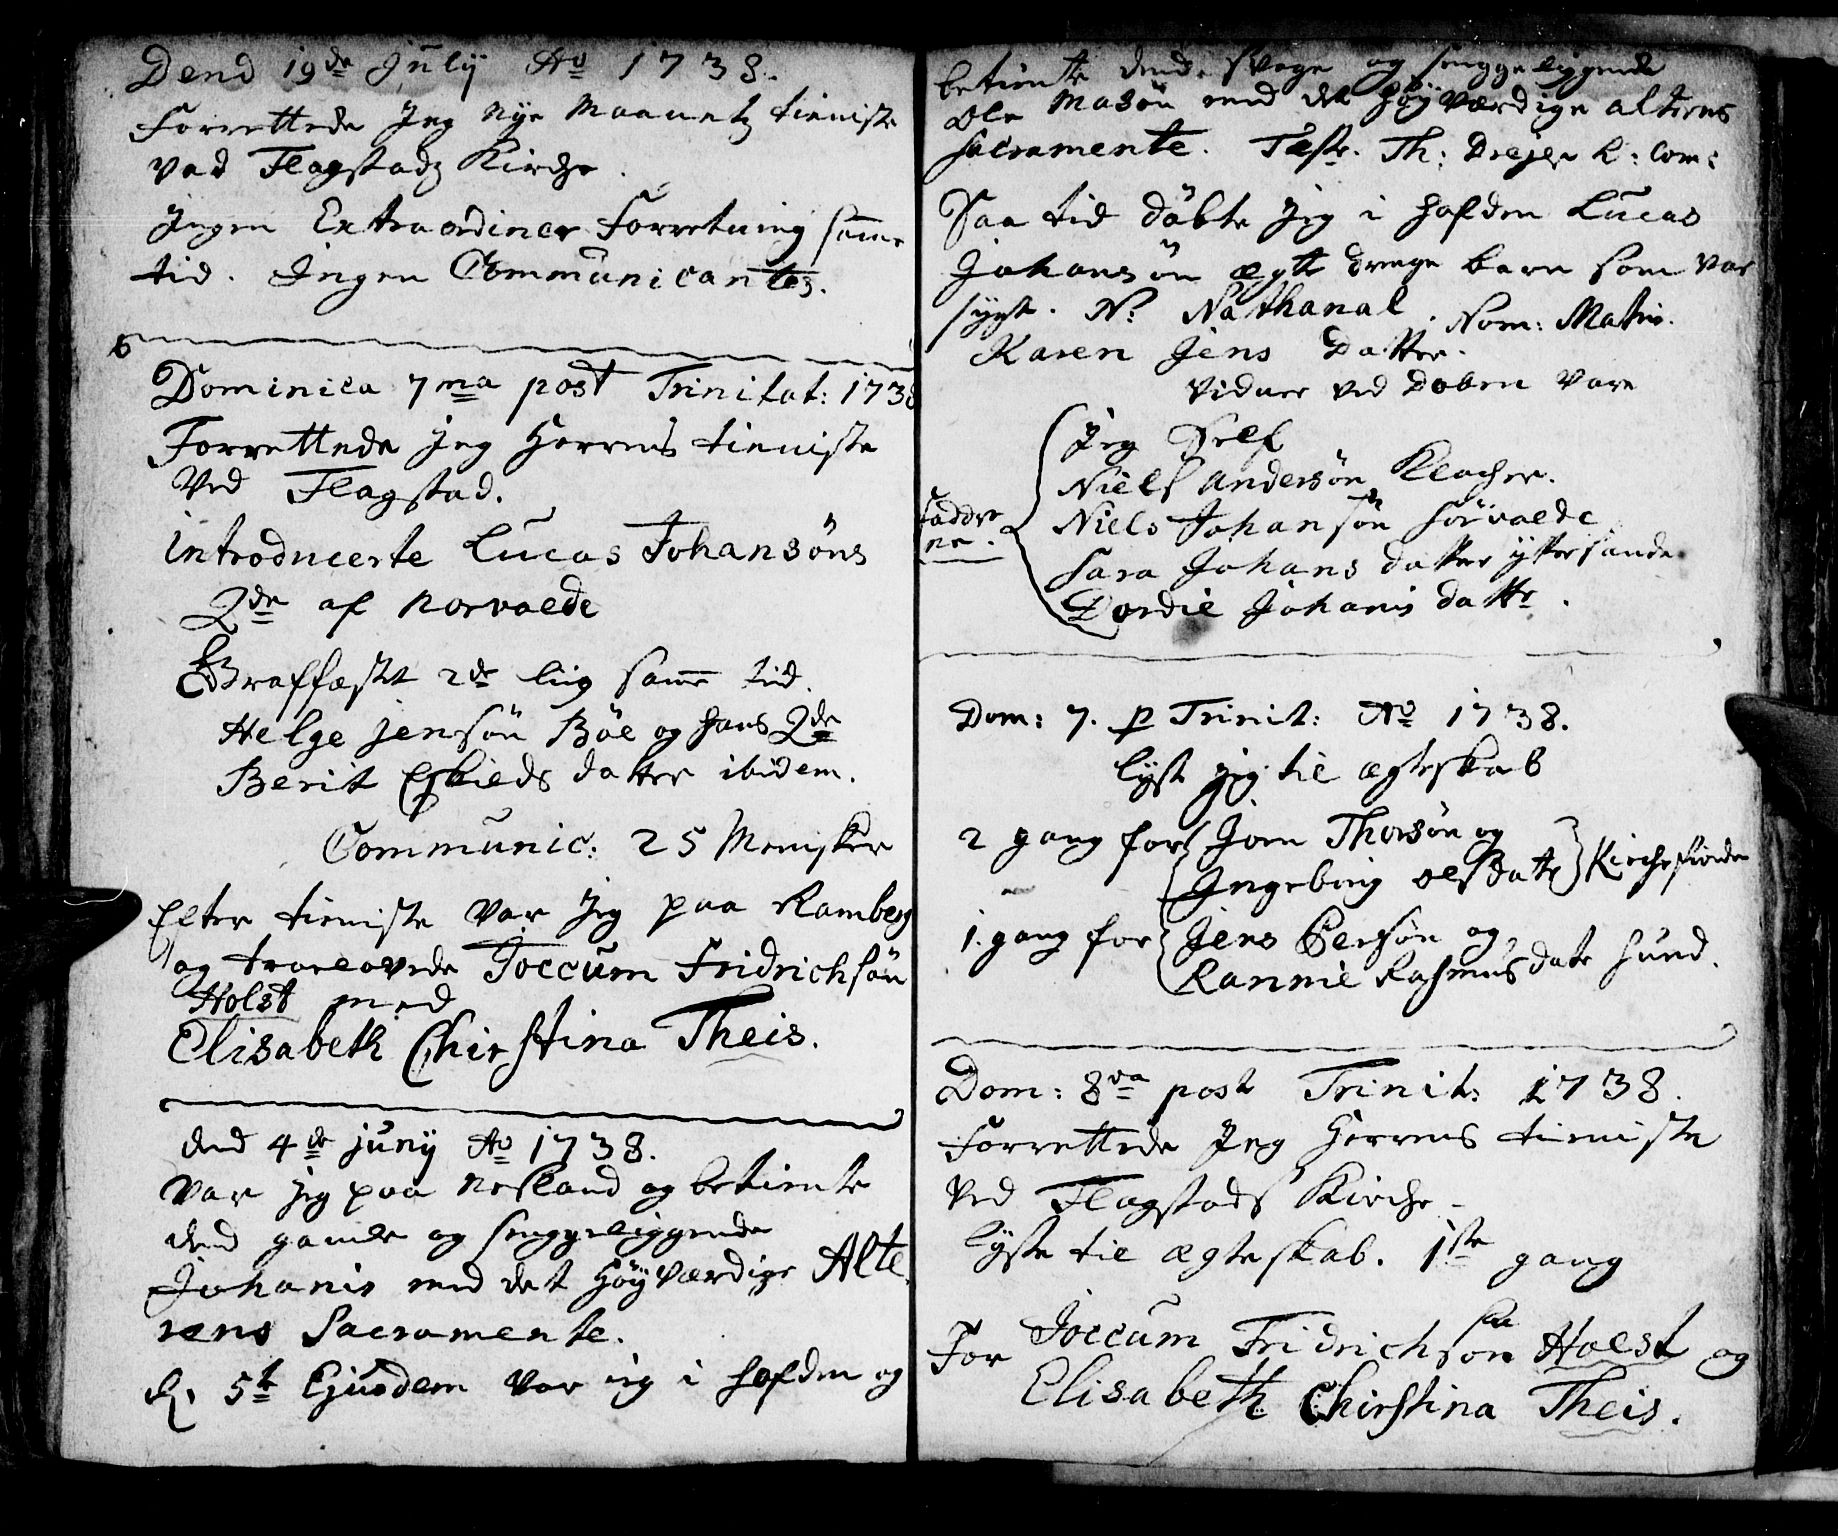 Dend 19de July Ao 1738.
Forrettede Jeg Nye Maanetz tieniste
ved Flagstadz Kirche.
Ingen Extraordiner Forretning samme
tid. Ingen Communicantes.
Dominica 7ma post Trinitat: 1738
Forrettede Jeg Herrens tieniste
Ved Flagstad.
introducerte Lucas Johansöns
Qde af Norvaede
Graffæstet 2de liig samme tid.
Helge Jensön Böe og hans Qde
Berit Eskieds datter ibidem.
Communic: 25 Menisker
Efter tieniste var Jeg paa Ramberg
og troelovede Joccum Fridrichsön
Holst med
Elisabeth Chirstina Theis.
dend 4de juny Ao 1738.
Var jeg paa Nesland og betiente
dend gamle og sengeliggende
Johanis med det Höyværdige Alte
rens Sacramente.
d. 5t Ejusdem var jeg i Hafden og
betiente dend svage og sengeligende
Ole Masön med det Höyværdige alterens
Sacramente. Test. Th: Drejer R: Com:
Saa tid döbte Jeg i Hafden Lucas
Johansön ægte drenge barn som var
sygt. N: Nathanal. Nom: Matris.
Karen Jens Datter.
Vidner ved Daben vare
Jeg Self
Niels Andersön Klocher.
Faddre
ne.
Niels Johansön Sörvaede
Sara Johans datter yttersande
Dordie Johanis datter.
Dom: 7. p Trinit: Ao 1738.
lyst jeg til ægteskab
2 gang for Jorn Thorsön og
Ingeborg Olsdatter Kirchefiorden
1. gang for Jens Persön og
Rannie Rasmusdater Sund.
Dom: 8va post Trinit: 1738.
Forrettede Jeg Herrens tieniste
ved Flagstads Kirche
lyste til ægteskab. 1ste gang
For Joccum Fridrichsön Holst og
Elisabeth Chirstina Theis.